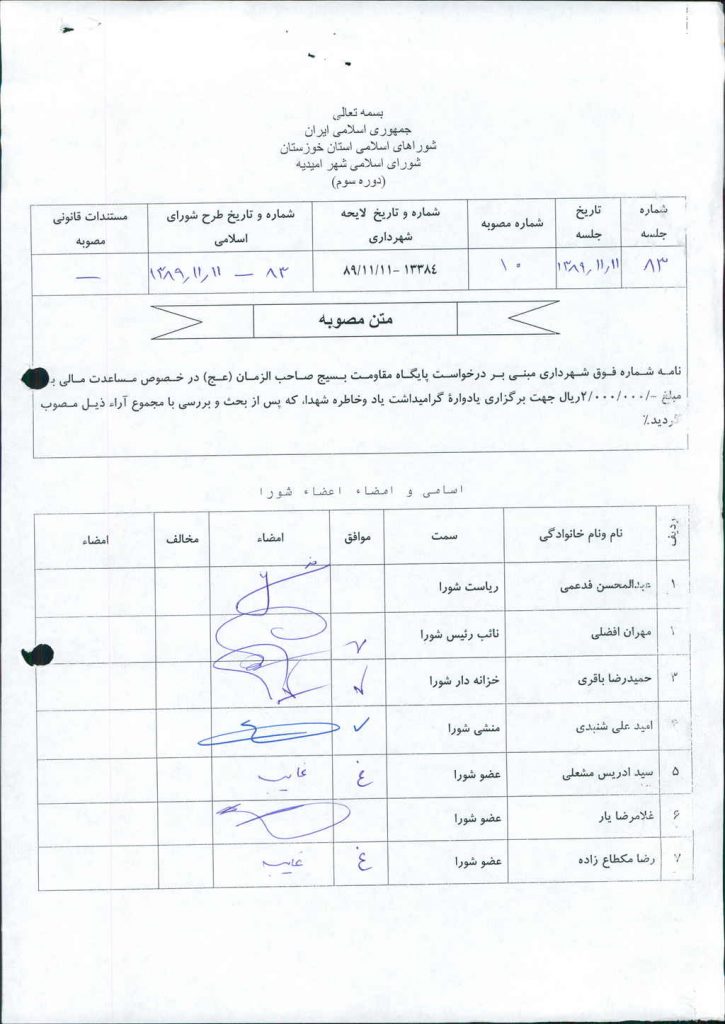 بسمه تعالی
جمهوری اسلامی ایران
شوراهای اسلامی استان خوزستان
شورای اسلامی شهر امیدیه
(دوره سوم)
شماره جلسه	تاریخ جلسه	شماره مصوبه	شماره و تاریخ لایحه شهرداری	شماره و تاریخ طرح شورای اسلامی	مستندات قانونی مصوبه
۸۳	۱۳۸۹/۱۱/۱۱	۱۰	۱۳۳۸٤ -۸۹/۱۱/۱۱	۸۳ — ۱۳۸۹/۱۱/۱۱	—
متن مصوبه
نامه شماره فوق شهرداری مبنی بر درخواست پایگاه مقاومت بسیج صاحب الزمان (عج) در خصوص مساعدت مالی به
مبلغ -/۲/۰۰۰/۰۰۰ریال جهت برگزاری یادوارۀ گرامیداشت یاد وخاطره شهدا، که پس از بحث و بررسی با مجموع آراء ذیل مصوب
گردید.٪
اسامی و امضاء اعضاء شورا
ردیف	نام ونام خانوادگی	سمت	موافق	امضاء	مخالف	امضاء
۱	عبدالمحسن فدعمی	ریاست شورا
۱	مهران افضلی	نائب رئیس شورا	✓
۳	حمیدرضا باقری	خزانه دار شورا	✓
۴	امید علی شنبدی	منشی شورا	✓
۵	سید ادریس مشعلی	عضو شورا	غ	غایب
۶	غلامرضا یار	عضو شورا
۷	رضا مکطاع زاده	عضو شورا	غ	غایب